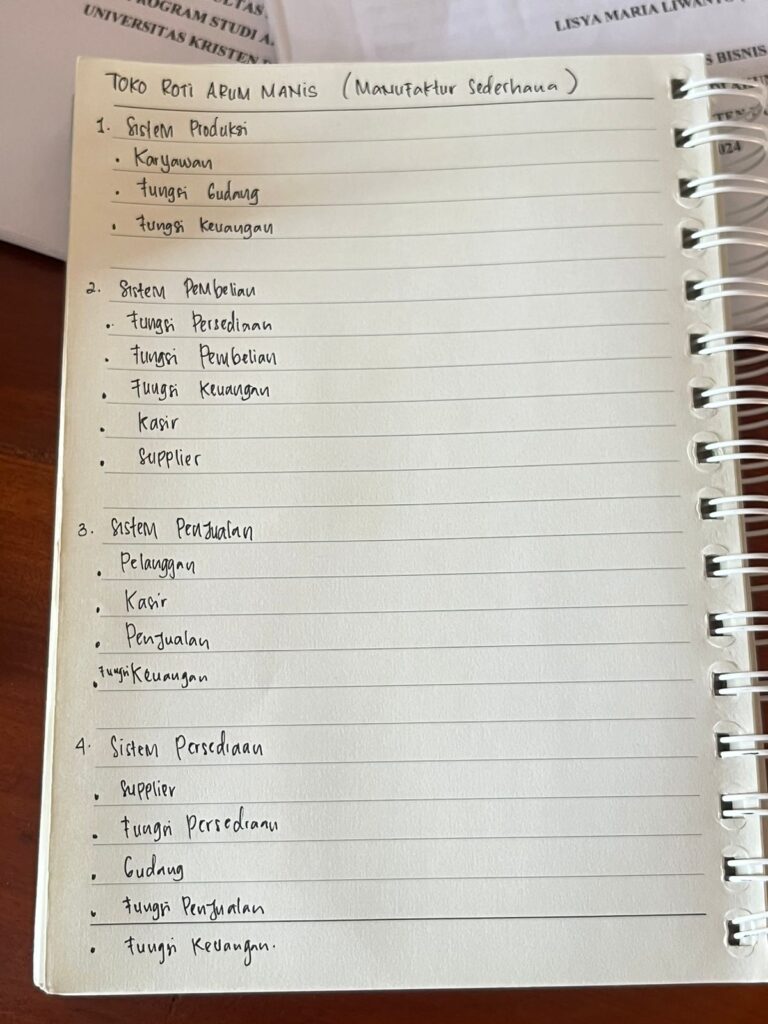 PROGRAM STUDI A
UNIVERSITAS KRISTEN
LISYA MARIA
BISNIS
TOKO ROTI ARUM MANIS (Manufaktur Sederhana)
1. Sistem Produksi
• Karyawan
• Fungsi Gudang
• Fungsi Keuangan
2. Sistem Pembelian
• Fungsi Persediaan
• Fungsi Pembelian
• Fungsi Keuangan
• Kasir
• Supplier
3. Sistem Penjualan
• Pelanggan
• Kasir
• Penjualan
• Fungsi Keuangan
4. Sistem Persediaan
• Supplier
• Fungsi Persediaan
• Gudang
• Fungsi Penjualan
• Fungsi Keuangan.